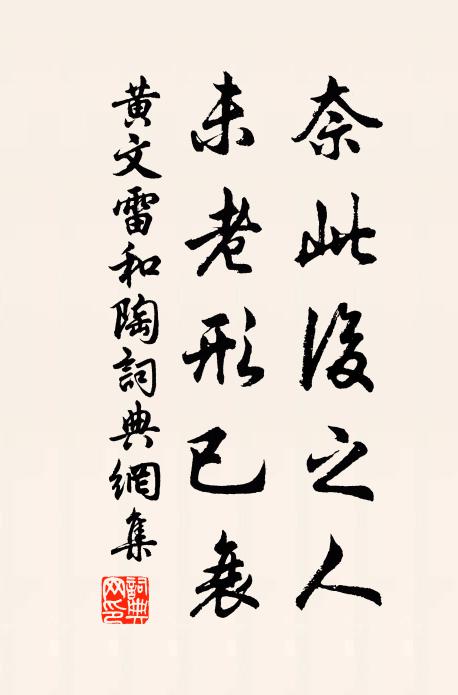 奈此後之人
未老形已衰
黄文雷和陶詞典網集
詞典
网印